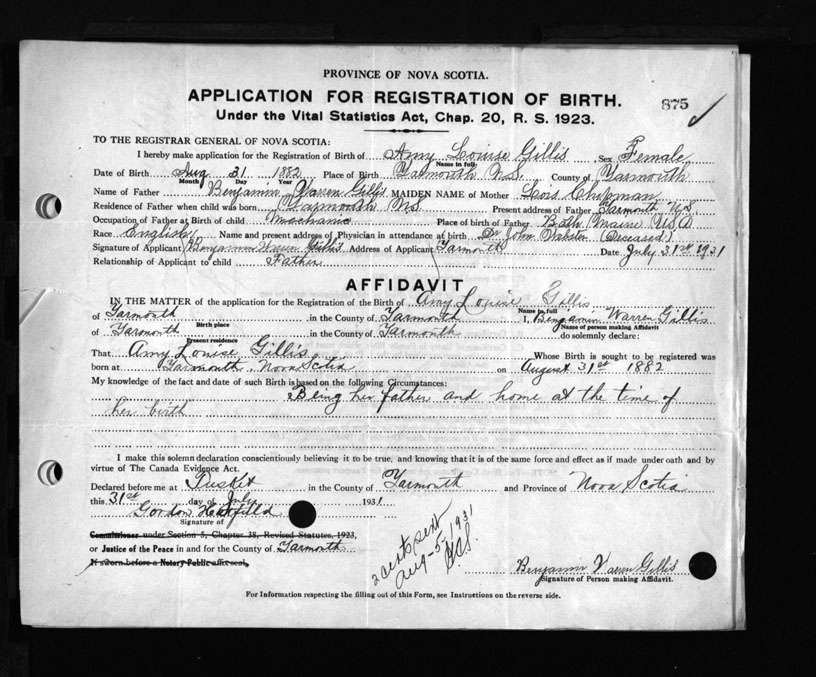 PROVINCE OF NOVA SCOTIA.
APPLICATION FOR REGISTRATION OF BIRTH. 875
Under the Vital Statistics Act, Chap. 20, R. S. 1923.
TO THE REGISTRAR GENERAL OF NOVA SCOTIA:
I hereby make application for the Registration of Birth of Amy Louise Gillis Sex Female
Name in full
Date of Birth Aug 31 1882 Place of Birth Yarmouth N.S. County of Yarmouth
Month Day Year
Name of Father Benjamin Warren Gillis MAIDEN NAME of Mother Lois Chipman
Residence of Father when child was born Yarmouth N.S Present address of Father Yarmouth N.S
Occupation of Father at Birth of child Mechanic Place of birth of Father Bath Maine U.S.A
Race English Name and present address of Physician in attendance at birth Dr John (Deceased)
Signature of Applicant Benjamin Warren Gillis Address of Applicant Yarmouth Date July 31st 1931
Relationship of Applicant to child Father
AFFIDAVIT
IN THE MATTER of the application for the Registration of the Birth of Amy Louise Gillis
Name in full
of Yarmouth in the County of Yarmouth I, Benjamin Warren Gillis
Birth place Name of person making Affidavit
of Yarmouth in the County of Yarmouth do solemnly declare:
Present residence
That Amy Louise Gillis Whose Birth is sought to be registered was
born at Yarmouth, Nova Scotia on August 31st 1882
My knowledge of the fact and date of such Birth is based on the following Circumstances:
Being her father and home at the time of
her birth
I make this solemn declaration conscientiously believing it to be true, and knowing that it is of the same force and effect as if made under oath and by
virtue of The Canada Evidence Act.
Declared before me at Tusket in the County of Yarmouth and Province of Nova Scotia
this 31st day of July 1931
Gordon Hatfield
Signature of
Commissioner under Section 5, Chapter 38, Revised Statutes, 1923,
or Justice of the Peace in and for the County of Yarmouth
If sworn before a Notary Public affix seal,
2 certs sent
Aug-5-1931
Benjamin Warren Gillis
Signature of Person making Affidavit.
For Information respecting the filling out of this Form, see Instructions on the reverse side.